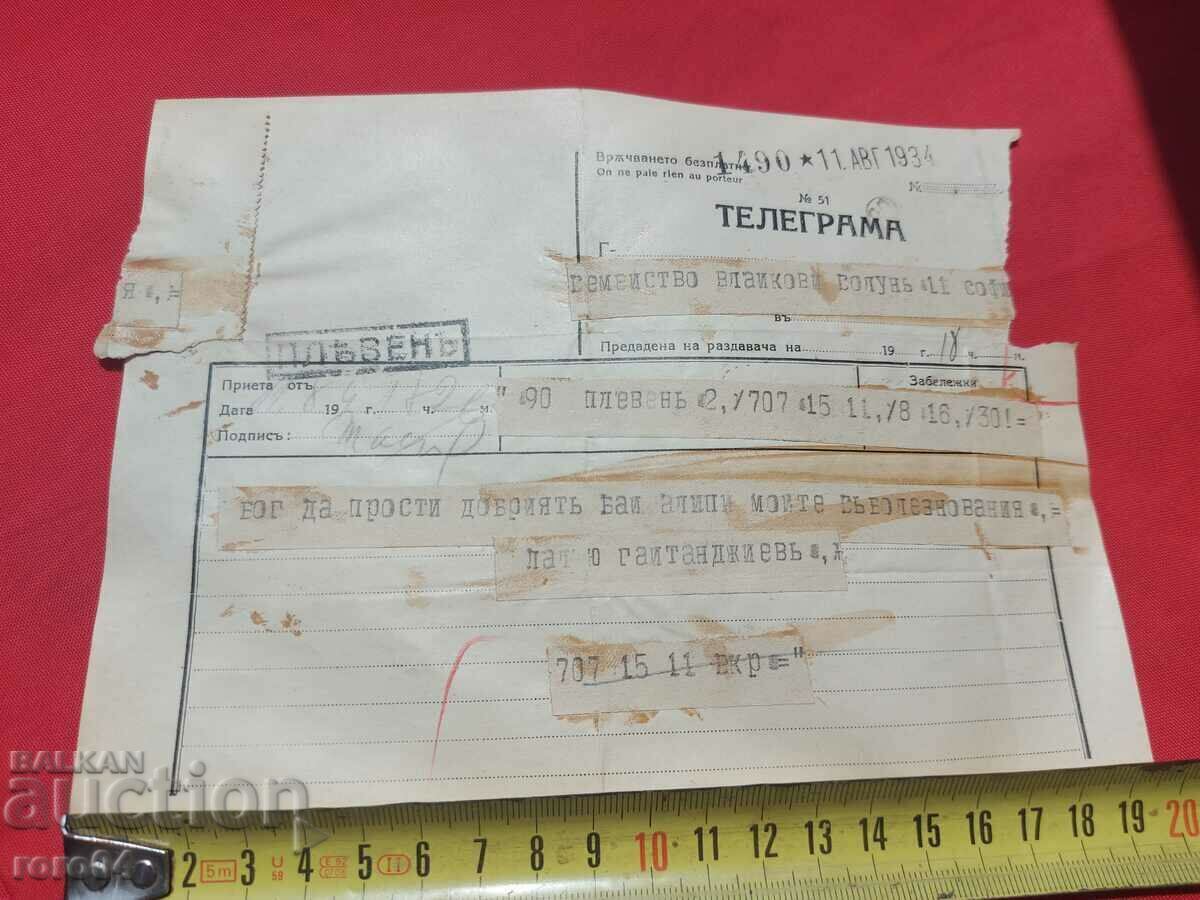 Врѫчването безплатно 1490 ★ 11. АВГ 1934
On ne paie rien au porteur
№
№ 51
ТЕЛЕГРАМА
Г-
семейство влаикови солунь 11 софи
я
въ
ПЛѢВЕНЪ
Предадена на раздавача на 19 г. 18 ч. м.
Приета отъ
Забележки
Дата 19 г. ч. м.
" 90 плевень 2,/707 15 11,/8 16,/30!=
Подписъ:
бог да прости добриять баи алипи моите съболезнования.,=
гаитанджиевь
707 15 11 вкр ="
BALKAN
auction
roro84
2 3 4 5 6 7 8 9 10 11 12 13 14 15 16 17 18 19 20
5m
II